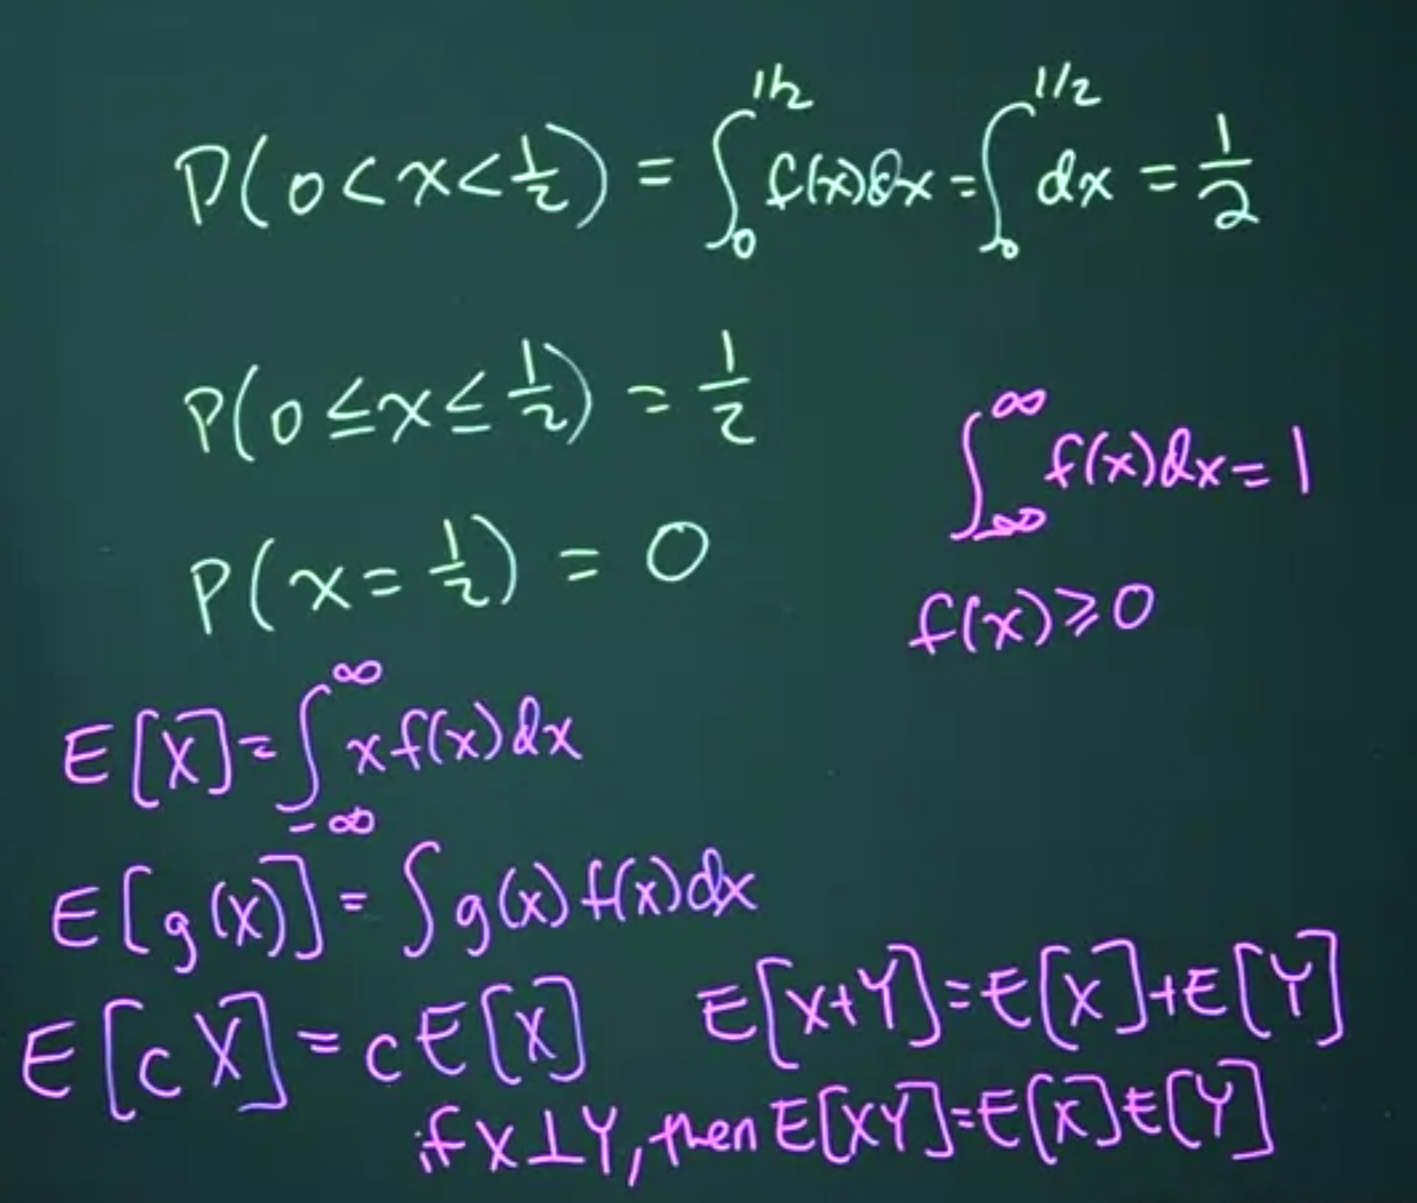 P(0<x<1/2) = ∫₀^{1/2} f(x)dx = ∫₀^{1/2} dx = 1/2
P(0≤x≤1/2) = 1/2
∫_{∞}^{∞} f(x)dx = 1
P(x=1/2) = 0
f(x)≥0
E[X] = ∫_{-∞}^{∞} x f(x)dx
E[g(X)] = ∫ g(x) f(x)dx
E[cX] = cE[X] E[X+Y]=E[X]+E[Y]
if X⊥Y, then E[XY]=E[X]E[Y]